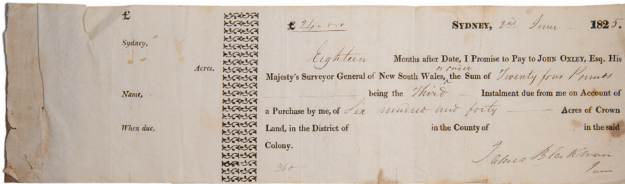 £
Sydney,
Acres.
Name,
When due,
£ 24-0-0 SYDNEY, 3rd June 1825.
Eighteen Months after Date, I Promise to Pay to JOHN OXLEY, Esq. His
or order
Majesty's Surveyor General of New South Wales, the Sum of Twenty four Pounds
being the Third Instalment due from me on Account of
a Purchase by me, of Six hundred and forty Acres of Crown
Land, in the District of in the County of in the said
Colony.
James Blackman
Junr